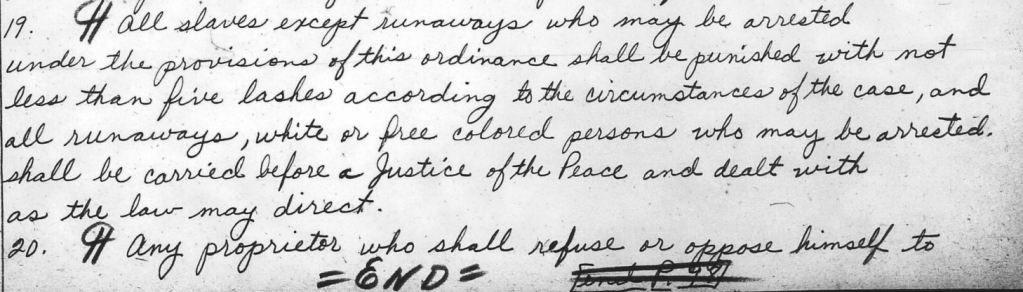 19. ¶ All slaves except runaways who may be arrested
under the provisions of this ordinance shall be punished with not
less than five lashes according to the circumstances of the case, and
all runaways, white or free colored persons who may be arrested.
shall be carried before a Justice of the Peace and dealt with
as the law may direct.
20. ¶ Any proprietor who shall refuse or oppose himself to
=END=